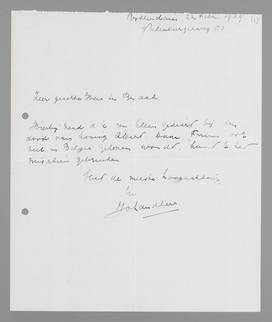 Rotterdam, 22 Febr. 1934 (1)
Zeer geachte Heer ter Braak,
Hierbij zend ik U een klein gedicht bij den
dood van koning Albert. Daar Forum ook
in België gelezen wordt, kunt U het
misschien gebruiken.
Met de meeste hoogachting